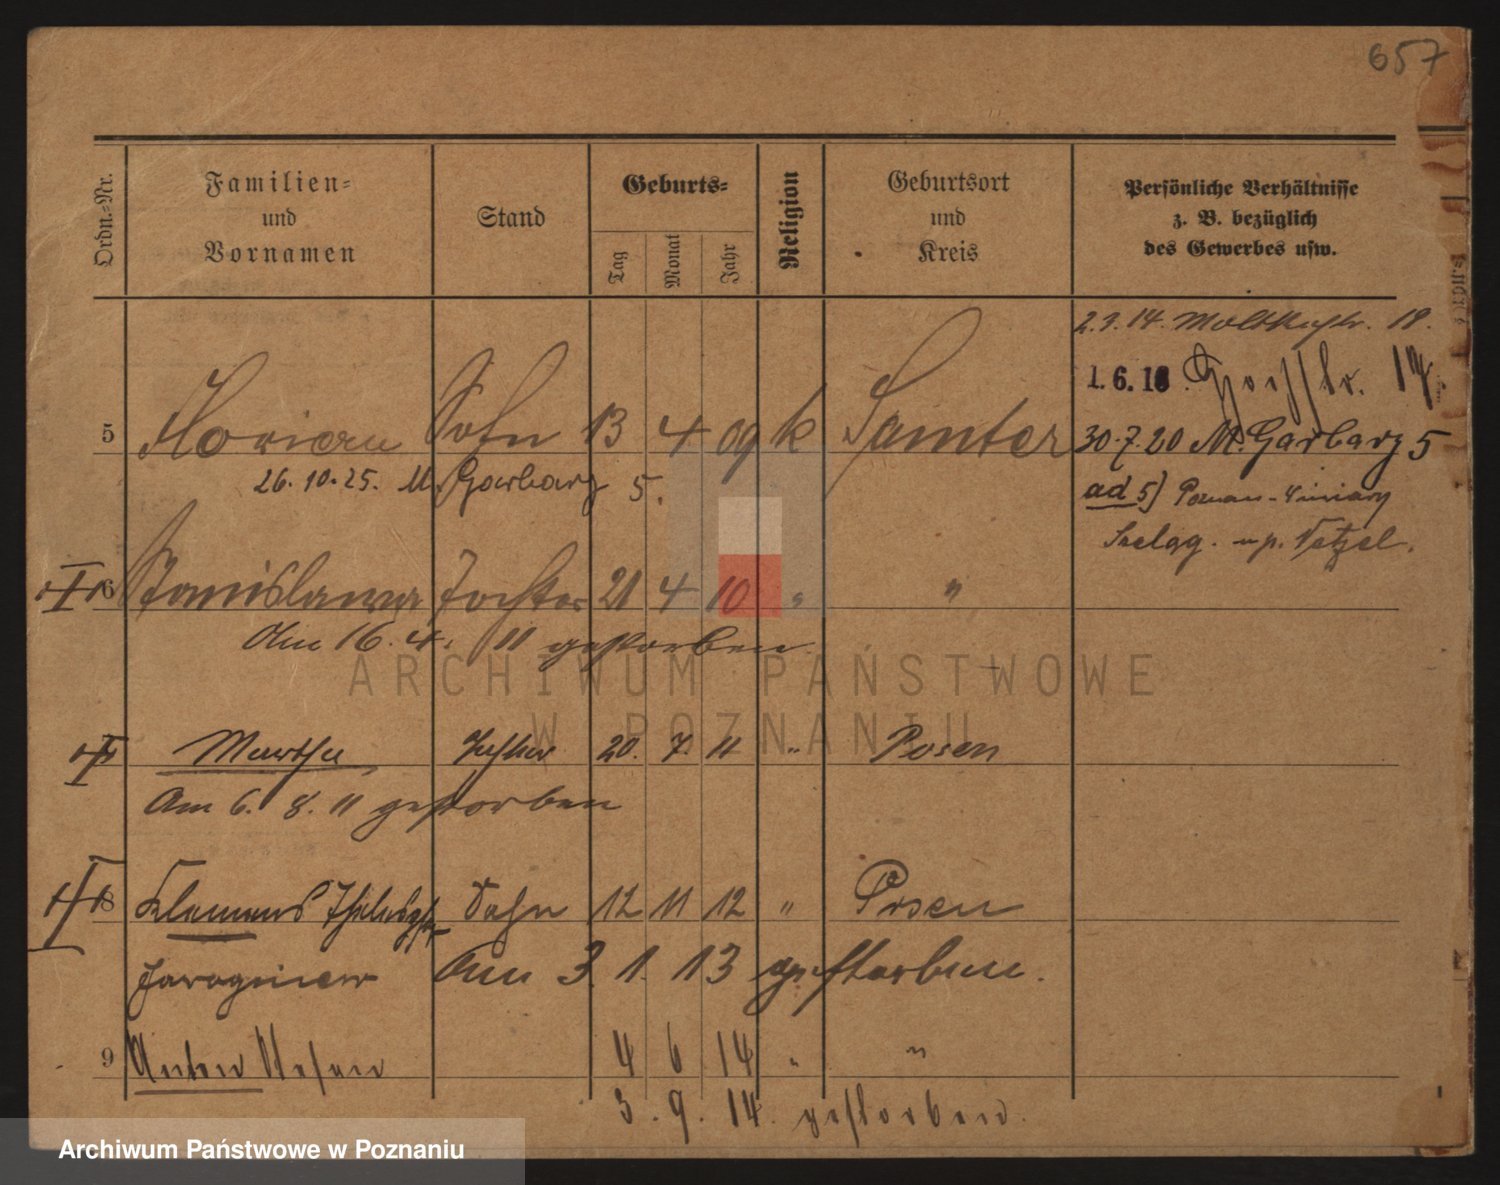 657
Ordn.-Nr.
Familien-
und
Vornamen
Stand
Geburts-
Tag
Monat
Jahr
Religion
Geburtsort
und
Kreis
Persönliche Verhältnisse
z. B. bezüglich
des Gewerbes usw.
2.9.14. Moltkestr. 19.
1.6.18
5 Florian Sohn 13 4 09 k Samter 30.7.20 M. Garbary 5
26.10.25. M. Garbary 5.
ad 5) Poznan-Winiary
Szelag.
6 Stanislawa Tochter 21 4 10 " "
Am 16. 4. 11 gestorben.
Martha Tochter 20. 7. 11 " Posen
Am 6. 8. 11 gestorben
8 Klemens Sohn 12 11 12 " Posen
Jarogniew Am 3. 1. 13 gestorben.
9 Anton 4 6 14 " "
3. 9. 14. gestorben.
ARCHIWUM PAŃSTWOWE
W POZNANIU
Archiwum Państwowe w Poznaniu